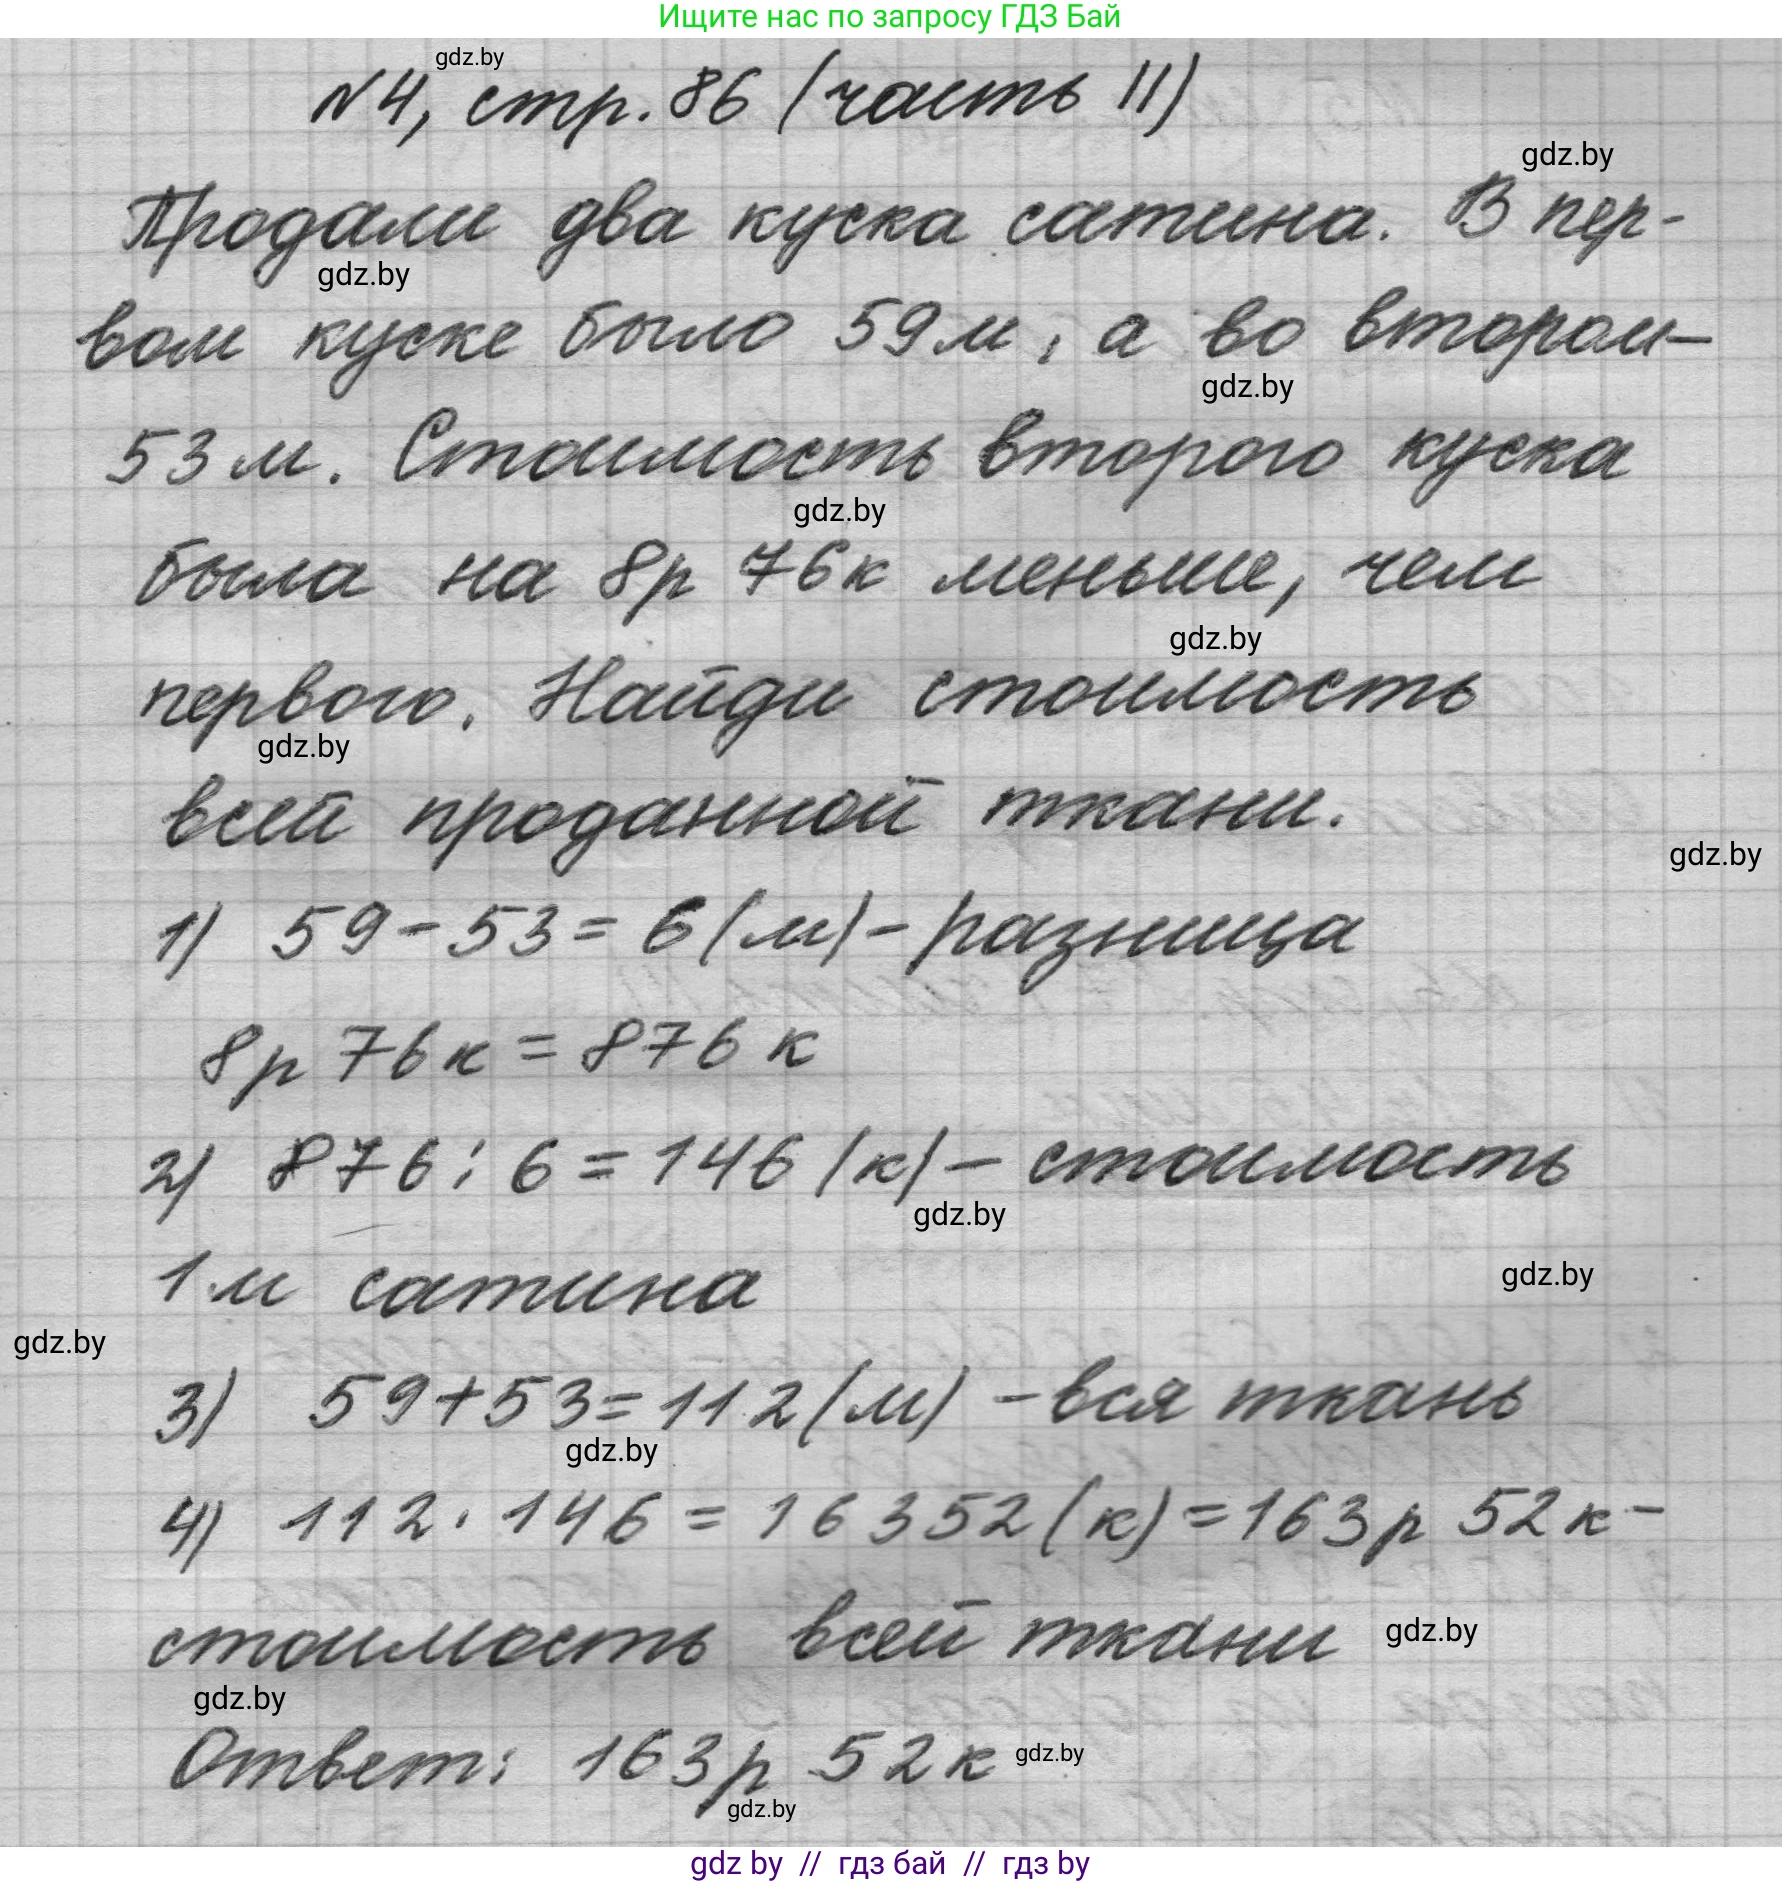 Ищите нас по запросу ГДЗ Бай
gdz.by
№4, стр. 86 (часть II)
gdz.by
Продали два куска сатина. В пер-
gdz.by
вом куске было 59 м, а во втором –
gdz.by
53 м. Стоимость второго куска
gdz.by
была на 8р 76к меньше, чем
gdz.by
первого. Найди стоимость
gdz.by
всей проданной ткани.
gdz.by
1) 59 - 53 = 6 (м) - разница
8р 76к = 876 к
2) 876 : 6 = 146 (к) – стоимость
gdz.by
1 м сатина
gdz.by
gdz.by
3) 59 + 53 = 112 (м) - вся ткань
gdz.by
4) 112 · 146 = 16352 (к) = 163р 52к -
стоимость всей ткани
gdz.by
gdz.by
Ответ: 163р 52к
gdz.by
gdz.by
gdz by // гдз бай // гдз by